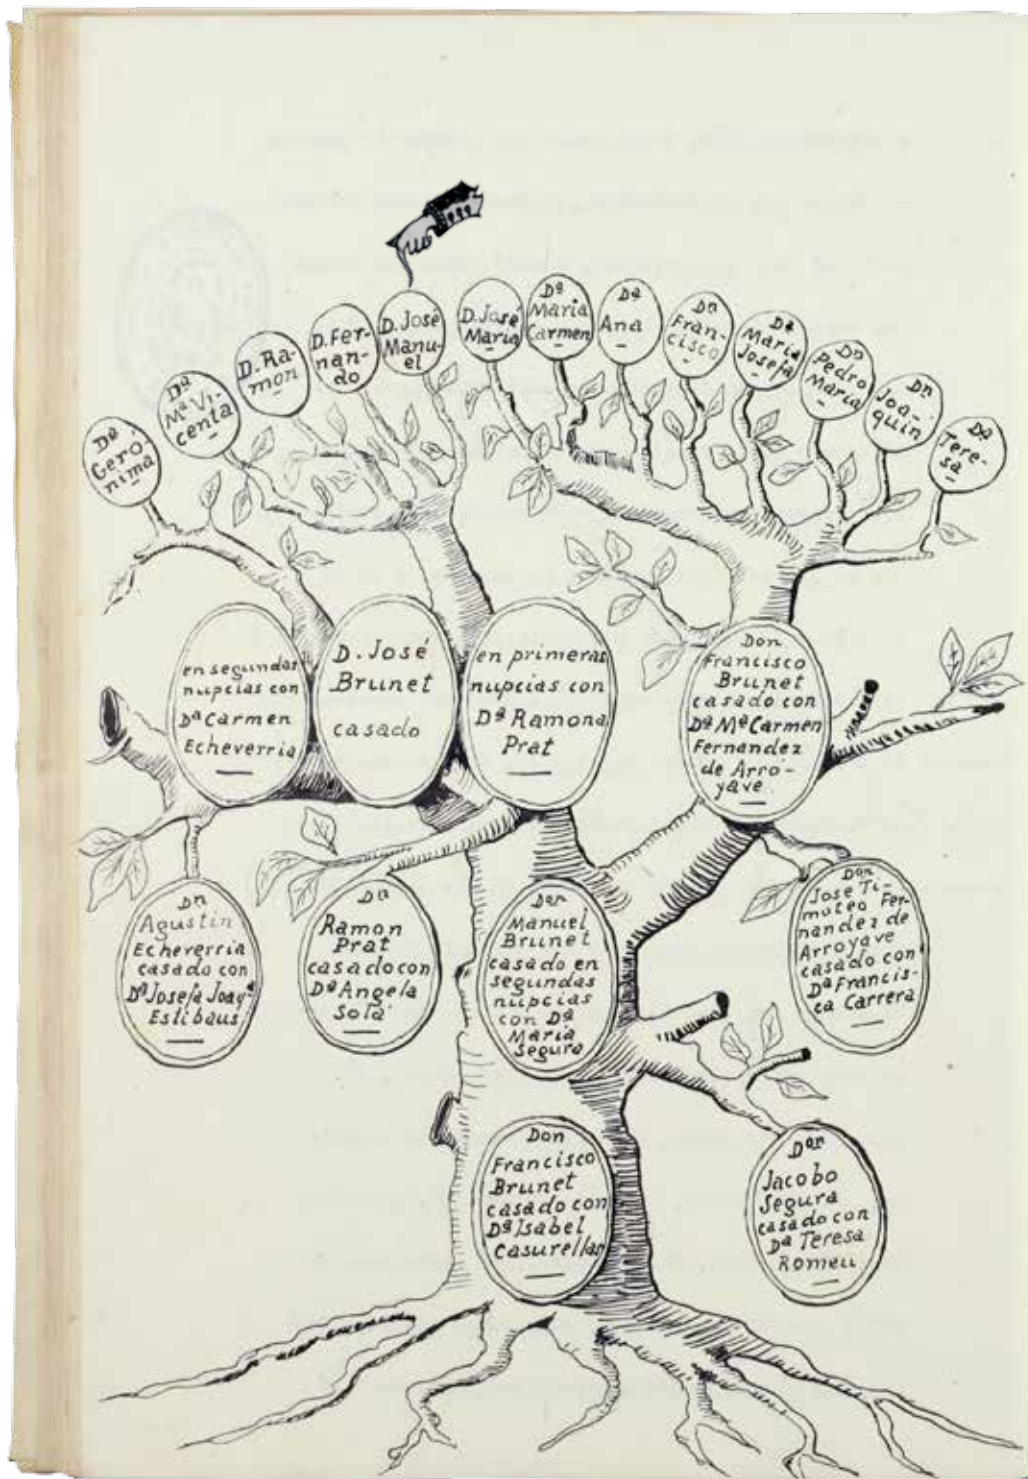 Dª
Gero-
nima
Dª
Mª Vi-
centa
D. Ra-
mon
D. Fer-
nan-
do
D. José
Manu-
el
D. José
Maria
Dª
Maria
Carmen
Dª
Ana
Dn
Fran-
cisco
Dª
Maria
Josefa
Dn
Pedro
Maria
Dn
Joa-
quin
Dª
Tere-
sa
en segundas
nupcias con
Dª Carmen
Echeverria
D. José
Brunet
casado
en primeras
nupcias con
Dª Ramona
Prat
Don
Francisco
Brunet
casado con
Dª Mª Carmen
Fernandez
de Arro-
yave.
Dn
Agustin
Echeverria
casado con
Dª Josefa Joaqª
Estibaus
Dn
Ramon
Prat
casado con
Dª Angela
Solá
Don
Manuel
Brunet
casado en
segundas
nupcias
con Dª
Maria
Segura
Don
Jose Ti-
moteo Fer-
nandez de
Arroyave
casado con
Dª Francis-
ca Carrera
Don
Francisco
Brunet
casado con
Dª Isabel
Casurellas
Don
Jacobo
Segura
casado con
Dª Teresa
Romeu